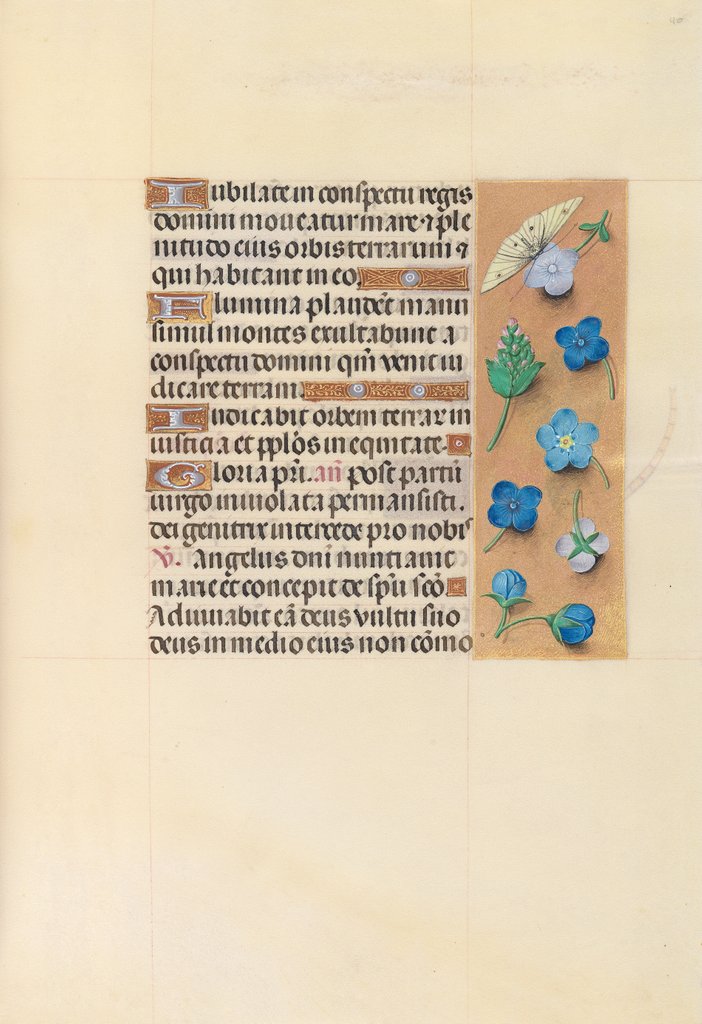 40
Iubilate in conspectu regis
domini moueatur mare ⁊ ple
nitudo eius orbis terrarum ⁊
qui habitant in eo.
Flumina plaudēt manu
simul montes exultabunt a
conspectu domini qm̄ venit iu
dicare terram.
Iudicabit orbem terrar̄ in
iusticia et pplōs in equitate.
Gloria pri. an̄ post partū
uirgo inuiolata permansisti.
dei genitrix intercede pro nobis
v̄. Angelus dnī nunciauit
marie et concepit de spū scō.
Adiuuabit eā deus vultu suo
deus in medio eius non cōmo